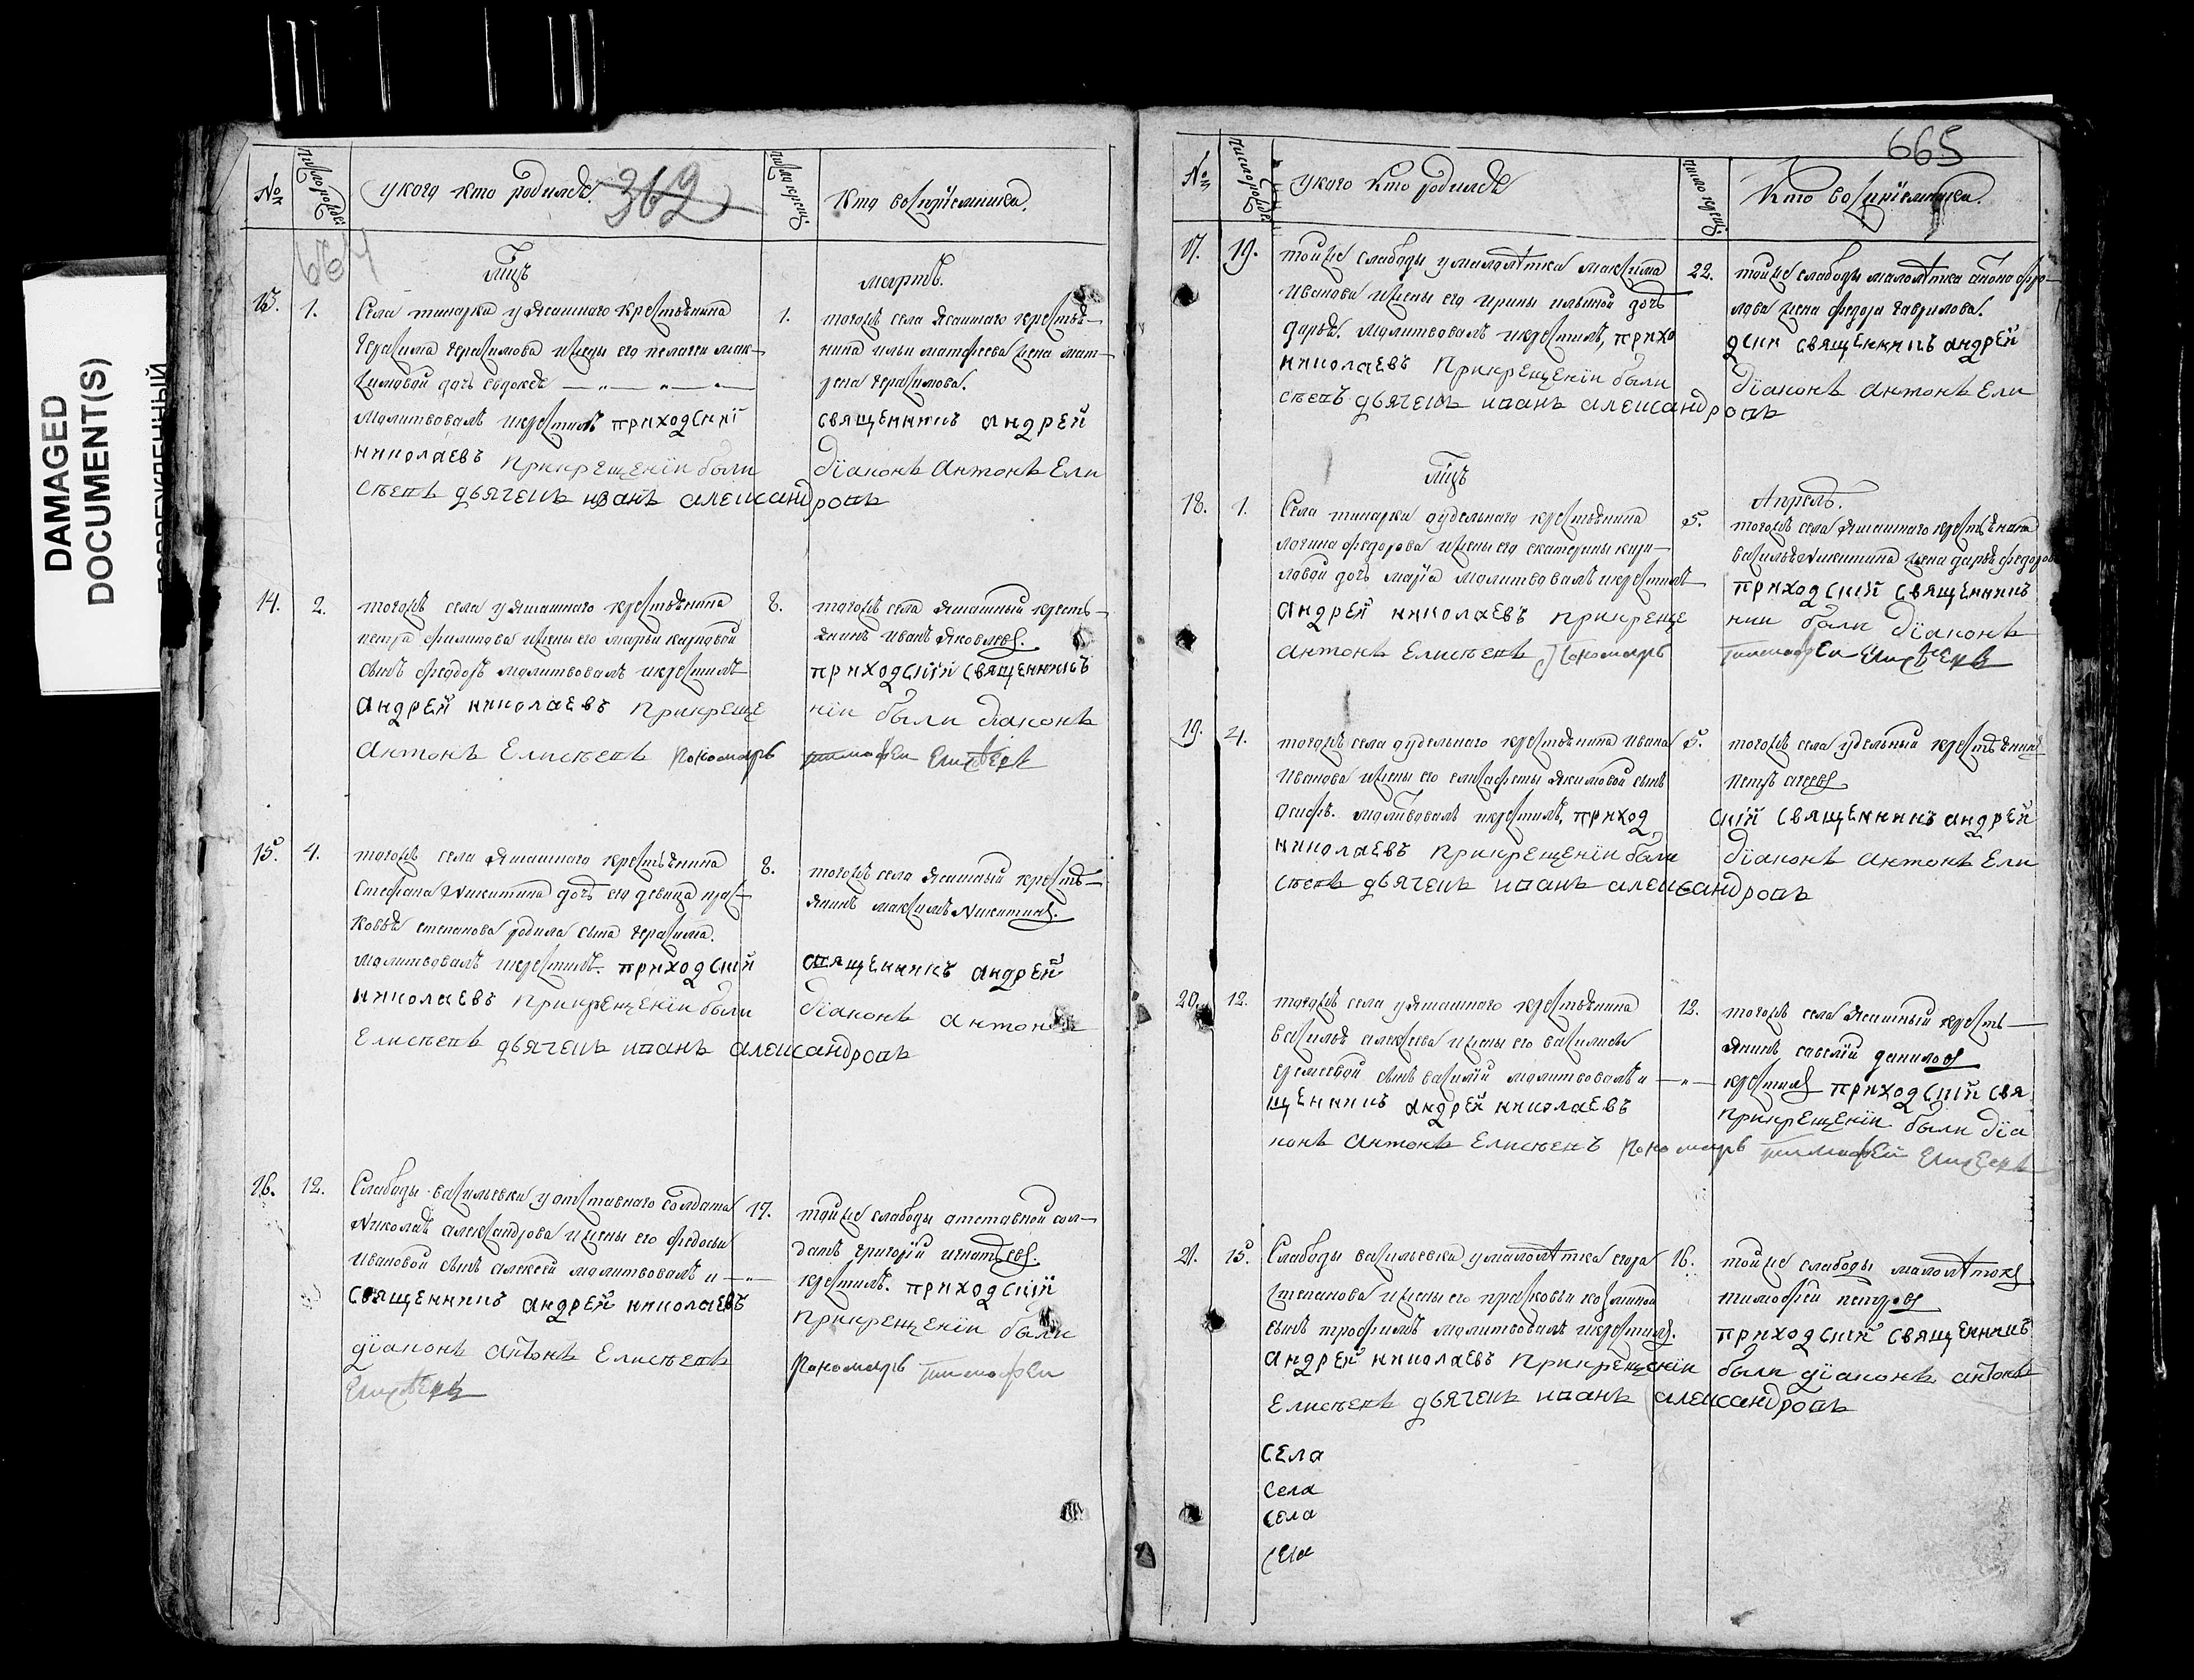 DAMAGED
DOCUMENT(S)
№
число рожден
у кого кто родилсѧ.
362
число крещен
кто воспрїемники.
664
Мцъ
мартъ.
13.
1.
Села тинарки у ясашнаго крестьянина
Герасима Герасимова и жены его пелагеи мак-
симовой дочь евдокеѧ
молитвовалъ и крестилъ приходскиї
николаевъ При крещенїи были
сѣевъ дьячекъ иванъ александровъ
1.
тогожъ села ясашнаго крестья-
нина ильи матфеева жена мат-
рена герасимова.
священникъ андрей
дїаконъ Антонъ Ели
14.
2.
тогожъ села у ясашнаго крестьянина
петра филипова и жены его марьи карповой
сынъ феодоръ молитвовалъ и крестилъ
андрей николаевъ При креще
Антонъ Елисѣевъ Пономарь
8.
тогожъ села ясашный кресть-
янинъ иванъ яковлевъ.
приходскїй священникъ
нїи были дїаконъ
тимофеи Елисѣевъ
15.
4.
тогожъ села ясашнаго крестьянина
стефана никитина дочь его девица прас-
ковья степанова родила сына герасима.
молитвовалъ и крестилъ. приходскїй
николаевъ При крещенїи были
Елисѣевъ дьячекъ иванъ александровъ
8.
тогожъ села ясашный кресть-
янинъ максимъ никитинъ.
священникъ андрей
дїаконъ антонъ
16.
12.
Слабоды васильевки у отставнаго солдата
николая александрова и жены его федосьи
ивановой сынъ алексей молитвовалъ и
священникъ андрей николаевъ
дїаконъ антонъ Елисѣевъ
Елисѣевъ
17.
тойже слабоды отставной сол-
датъ григорїй игнатьевъ.
крестилъ. приходскїй
При крещенїи были
Пономарь тимофеи
665
№
число рожден
у кого кто родилсѧ
число крещен
Кто воспрїемники.
17.
19.
тойже слабоды у малолѣтка максима
иванова и жены его ирины ильиной дочь
дарья. молитвовалъ и крестилъ, прихо
николаевъ При крещенїи были
сѣевъ дьячекъ иванъ александровъ
22.
тойже слабоды малолѣтка антона фро-
лова жена федора гаврилова.
дски священникъ андрей
дїаконъ антонъ Ели
мцъ
Апрель.
18.
1.
Села тинарки у удельнаго крестьянина
логина федорова и жены его екатерины кири-
ловой дочь марїа молитвовалъ и крестилъ
андрей николаевъ При креще
антонъ Елисѣевъ Пономарь
5.
тогожъ села ясашнаго крестьянина
василья никитина жена дарья федоров
приходскїй священникъ
нии были дїаконъ
тимофеи Елисѣевъ
19.
4.
тогожъ села у удельнаго крестьянина ивана
иванова и жены его елисафеты якимовой сынъ
осифъ. молитвовалъ и крестилъ, приход
николаевъ При крещенїи были
сѣевъ дьячекъ иванъ александровъ
5.
тогожъ села удельный крестьянинъ
петръ агеевъ
скїй священникъ андрей
дїаконъ антонъ Ели
20.
12.
тогожъ села у ясашнаго крестьянина
василья алексеева и жены его василисы
еремеевой сынъ василїй молитвовалъ и
щенникъ андрей николаевъ
конъ антонъ Елисѣевъ Пономарь тимофей Елисѣевъ
12.
тогожъ села ясашный кресть-
янинъ савелїй даниловъ
крестилъ приходскїй свя
При крещенїи были дїа
21.
15.
Слабоды васильевки у малолѣтка егора
степанова и жены его прасковьи козминой
сынъ трофимъ молитвовалъ и крестилъ.
андрей николаевъ При крещенїи
Елисѣевъ дьячекъ иванъ александровъ
16.
тойже слабоды малолѣтокъ
тимофей петровъ
приходскїй священникъ
были дїаконъ антонъ
села
села
села
села